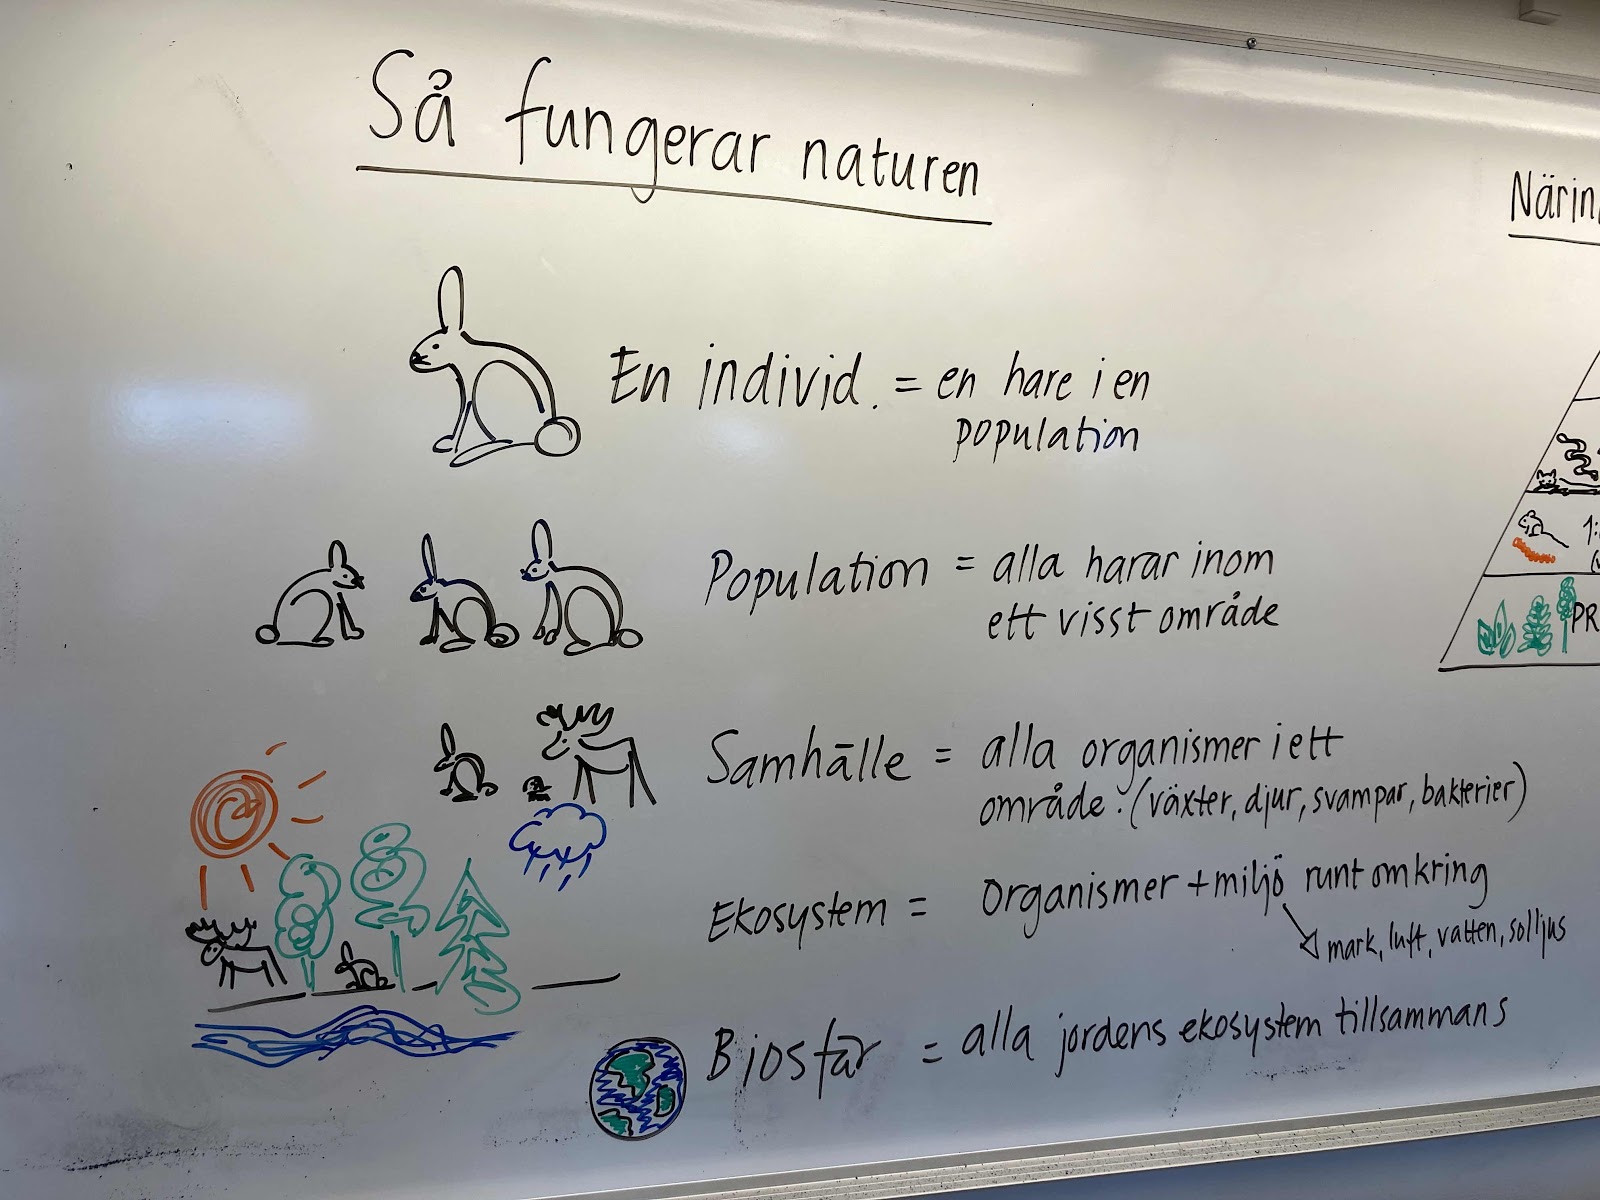 Så fungerar naturen
En individ. = en hare i en
population
Population = alla harar inom
ett visst område
Samhälle = alla organismer i ett
område. (växter, djur, svampar, bakterier)
Ekosystem = organismer + miljö runt omkring
mark, luft, vatten, solljus
Biosfär = alla jordens ekosystem tillsammans
Närin
1:
PR